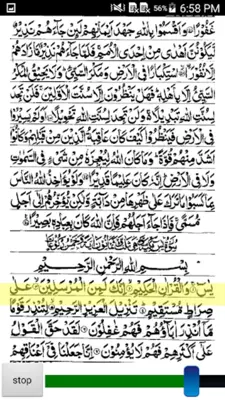 6:58 PM
56%
غَفُوْرًا ۝ وَاَقْسَمُوْا بِاللّٰهِ جَهْدَ اَيْمَانِهِمْ لَئِنْ جَآءَهُمْ نَذِيْرٌ
لَّيَكُوْنُنَّ اَهْدٰى مِنْ اِحْدَى الْاُمَمِ فَلَمَّا جَآءَهُمْ نَذِيْرٌ مَّا زَادَهُمْ
اِلَّا نُفُوْرًا ۝ اسْتِكْبَارًا فِى الْاَرْضِ وَمَكْرَ السَّيِّئِ وَلَا يَحِيْقُ الْمَكْرُ
السَّيِّئُ اِلَّا بِاَهْلِهٖ فَهَلْ يَنْظُرُوْنَ اِلَّا سُنَّتَ الْاَوَّلِيْنَ فَلَنْ تَجِدَ
لِسُنَّتِ اللّٰهِ تَبْدِيْلًا وَلَنْ تَجِدَ لِسُنَّتِ اللّٰهِ تَحْوِيْلًا ۝ اَوَلَمْ يَسِيْرُوْا
فِى الْاَرْضِ فَيَنْظُرُوْا كَيْفَ كَانَ عَاقِبَةُ الَّذِيْنَ مِنْ قَبْلِهِمْ وَكَانُوْٓا
اَشَدَّ مِنْهُمْ قُوَّةً وَمَا كَانَ اللّٰهُ لِيُعْجِزَهٗ مِنْ شَىْءٍ فِى السَّمٰوٰتِ
وَلَا فِى الْاَرْضِ اِنَّهٗ كَانَ عَلِيْمًا قَدِيْرًا ۝ وَلَوْ يُؤَاخِذُ اللّٰهُ النَّاسَ
بِمَا كَسَبُوْا مَا تَرَكَ عَلٰى ظَهْرِهَا مِنْ دَآبَّةٍ وَّلٰكِنْ يُّؤَخِّرُهُمْ اِلٰٓى اَجَلٍ
مُّسَمًّى فَاِذَا جَآءَ اَجَلُهُمْ فَاِنَّ اللّٰهَ كَانَ بِعِبَادِهٖ بَصِيْرًا ۝
بِسْمِ اللّٰهِ الرَّحْمٰنِ الرَّحِيْمِ
يٰسٓ ۝ وَالْقُرْاٰنِ الْحَكِيْمِ ۝ اِنَّكَ لَمِنَ الْمُرْسَلِيْنَ ۝ عَلٰى
صِرَاطٍ مُّسْتَقِيْمٍ ۝ تَنْزِيْلَ الْعَزِيْزِ الرَّحِيْمِ ۝ لِتُنْذِرَ قَوْمًا
مَّآ اُنْذِرَ اٰبَآؤُهُمْ فَهُمْ غٰفِلُوْنَ ۝ لَقَدْ حَقَّ الْقَوْلُ
عَلٰٓى اَكْثَرِهِمْ فَهُمْ لَا يُؤْمِنُوْنَ ۝ اِنَّا جَعَلْنَا فِىْٓ اَعْنَاقِهِمْ
stop